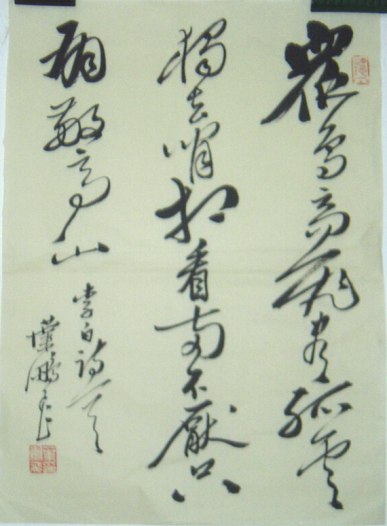 眾鳥高飛盡孤雲
獨去閒相看兩不厭只
有敬亭山
李白詩
鵬